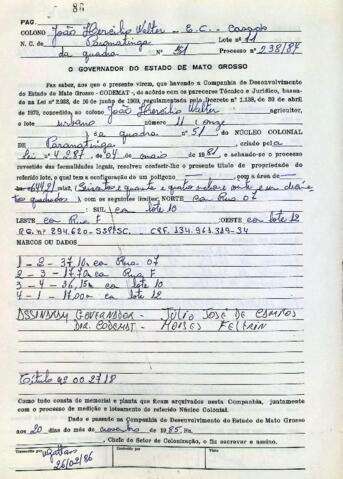 86
PAG.
COLONO João Hercílio Walter - E.C. Casado
N. C. de Paranatinga Lote nº 11
da quadra nº 51 Processo nº 238/84
O GOVERNADOR DO ESTADO DE MATO GROSSO
Faz saber, aos que o presente virem, que havendo a Companhia de Desenvolvimento
do Estado de Mato Grosso - CODEMAT -, de acôrdo com os pareceres Técnico e Jurídico, basea-
da na Lei nº 2.923, de 26 de junho de 1969, regulamentada pelo Decreto nº 1.138, de 20 de abril
de 1970, concedido, ao colono João Hercílio Walter agricultor,
o lote urbano número 11 (onze
) da quadra nº 51 NÚCLEO COLONIAL
DE Paranatinga, criado pela
Lei 4.287, de 04 de maio de 1981, e achando-se o processo
revestido das formalidades legais, resolveu conferir-lhe o presente título de propriedade do
referido lote, o qual tem a configuração de um polígono com a área de
644,21
com os seguintes limites: NORTE ca Rua 07
: SUL ca lote 10
LESTE ca Rua F : OESTE ca lote 12
R.G. nº 294.620-SSP/SC. CPF. 134.961.319-34
MARCOS OU DADOS
1 - 2 - 37,10m ca Rua 07
2 - 3 - 17,70m ca Rua F
3 - 4 - 36,15m ca lote 10
4 - 1 - 17,00m ca lote 12
ASSINARAM GOVERNADOR - JÚLIO JOSÉ DE CAMPOS
DIR. CODEMAT - MOISES FELTRIN
Título 42002718
Como tudo consta do memorial e planta que ficam arquivados nesta Companhia, juntamente
com o processo de medição e loteamento do referido Núcleo Colonial.
Dado e passado na Companhia de Desenvolvimento do Estado de Mato Grosso
aos 20 dias do mês de novembro de 1985. Eu,
, Chefe do Setor de Colonização, o fiz escrever e assino.
Transcrito por
Conferido
Visto
26/02/86